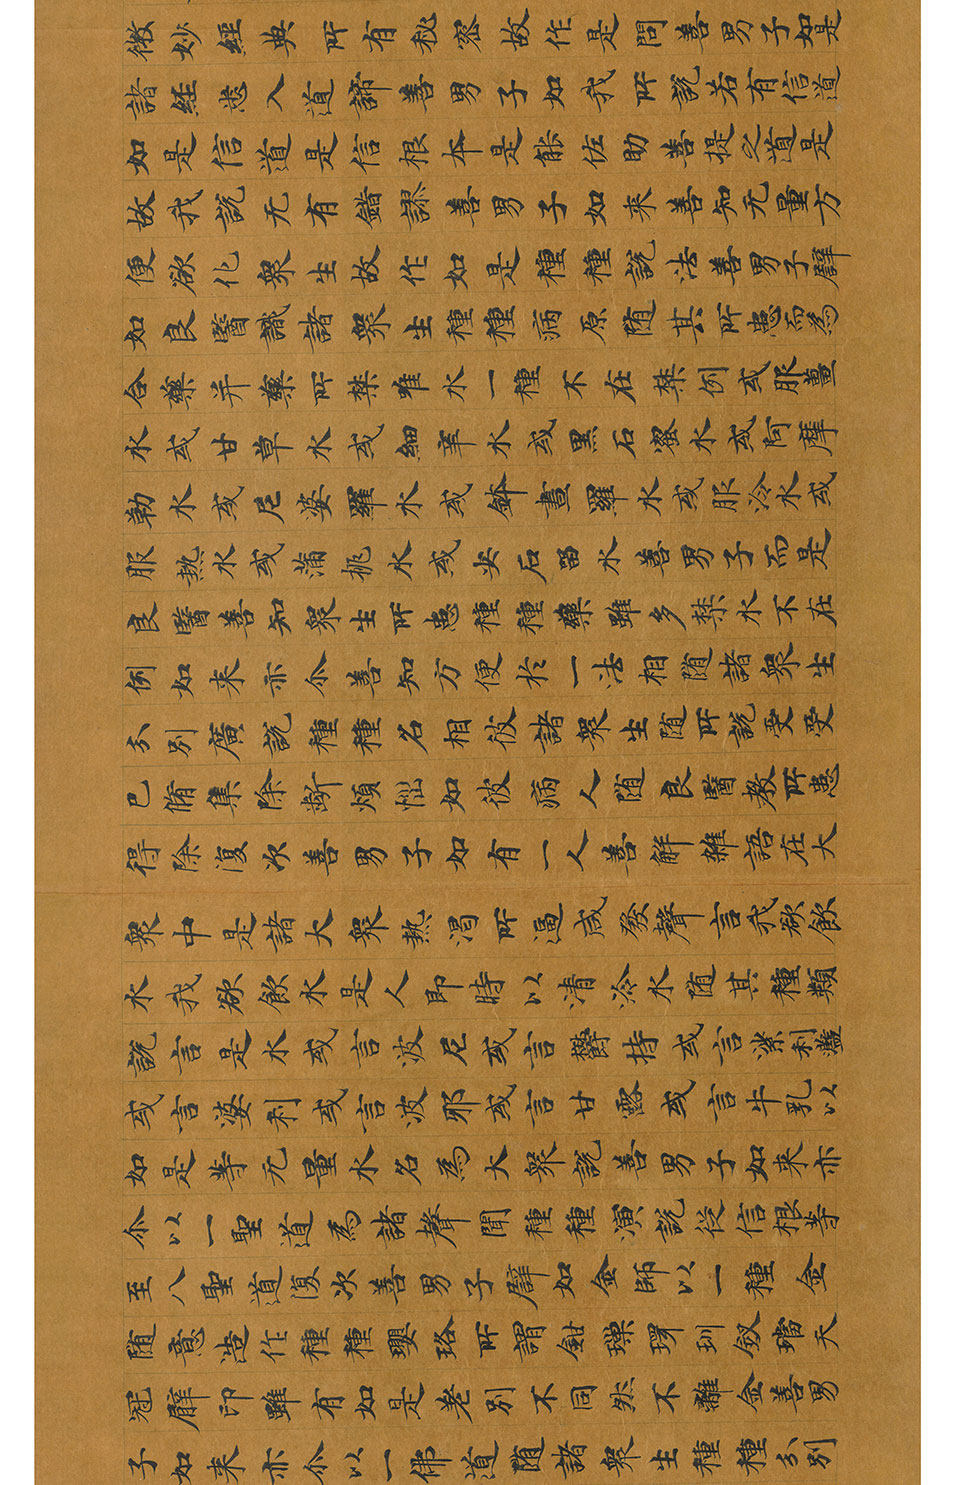 微妙經典所有秘密故作是問善男子如是
諸經悉入道諦善男子如我所說若有信道
如是信道是信根本是能佐助菩提之道是
故我說无有錯謬善男子如来善知无量方
便欲化衆生故作如是種種說法善男子譬
如良醫識諸衆生種種病原随其所患而為
合藥并藥所禁唯水一種不在禁例或服薑
水或甘草水或細辛水或黑石蜜水或阿摩
勒水或尼婆羅水或鉢晝羅水或服冷水或
服熱水或蒲桃水或安石留水善男子而是
良醫善知衆生所患種種藥雖多禁水不在
例如来亦尒善知方便於一法相随諸衆生
分別廣說種種名相彼諸衆生随所說受受
已脩集除断煩惱如彼病人随良醫教所患
得除復次善男子如有一人善解雜語在大
衆中是諸大衆熱渴所逼咸發聲言我欲飲
水我欲飲水是人即時以清冷水随其種類
說言是水或言波尼或言欝持或言娑利藍
或言婆利或言波耶或言甘露或言牛乳以
如是等无量水名為大衆說善男子如来亦
尒以一聖道為諸聲聞種種演說從信根等
至八聖道復次善男子譬如金師以一種金
随意造作種種瓔珞所謂鉗璅環玔釵璫天
冠臂印雖有如是差別不同然不離金善男
子如来亦尒以一佛道随諸衆生種種分別